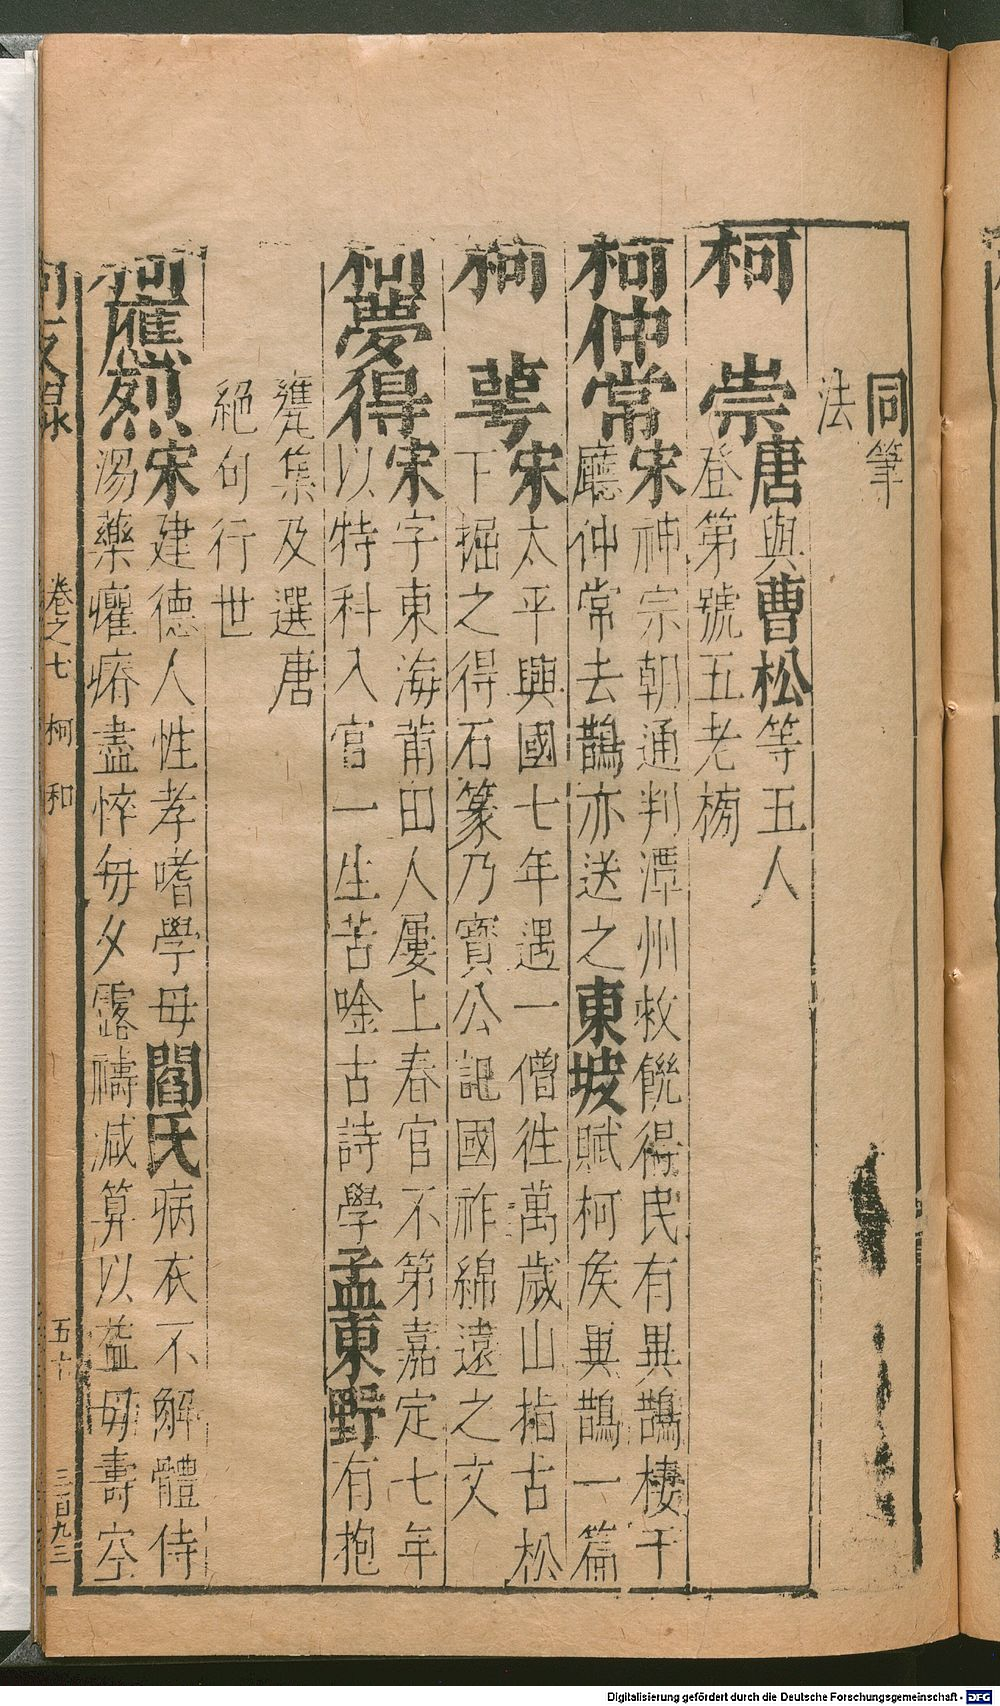 同筆
法
柯　崇唐與曹松等五人
登第號五老榜
柯仲常宋神宗朝通判潭州救饑得民有異鵲棲于
廳仲常去鵲亦送之東坡賦柯侯異鵲一篇
柯　萼宋太平興國七年遇一僧徃萬歲山指古松
下掘之得石篆乃寶公記國祚綿遠之文
柯夢得宋字東海莆田人屢上春官不第嘉定七年
以特科入官一生苦唫古詩學孟東野有抱
甕集及選唐
絕句行世
柯應烈宋建德人性孝嗜學母閻氏病衣不解體侍
湯藥癯瘠盡悴每夕露禱減算以益母壽空
卷之七　柯　和　五十　三百九三
Digitalisierung gefördert durch die Deutsche Forschungsgemeinschaft - DFG